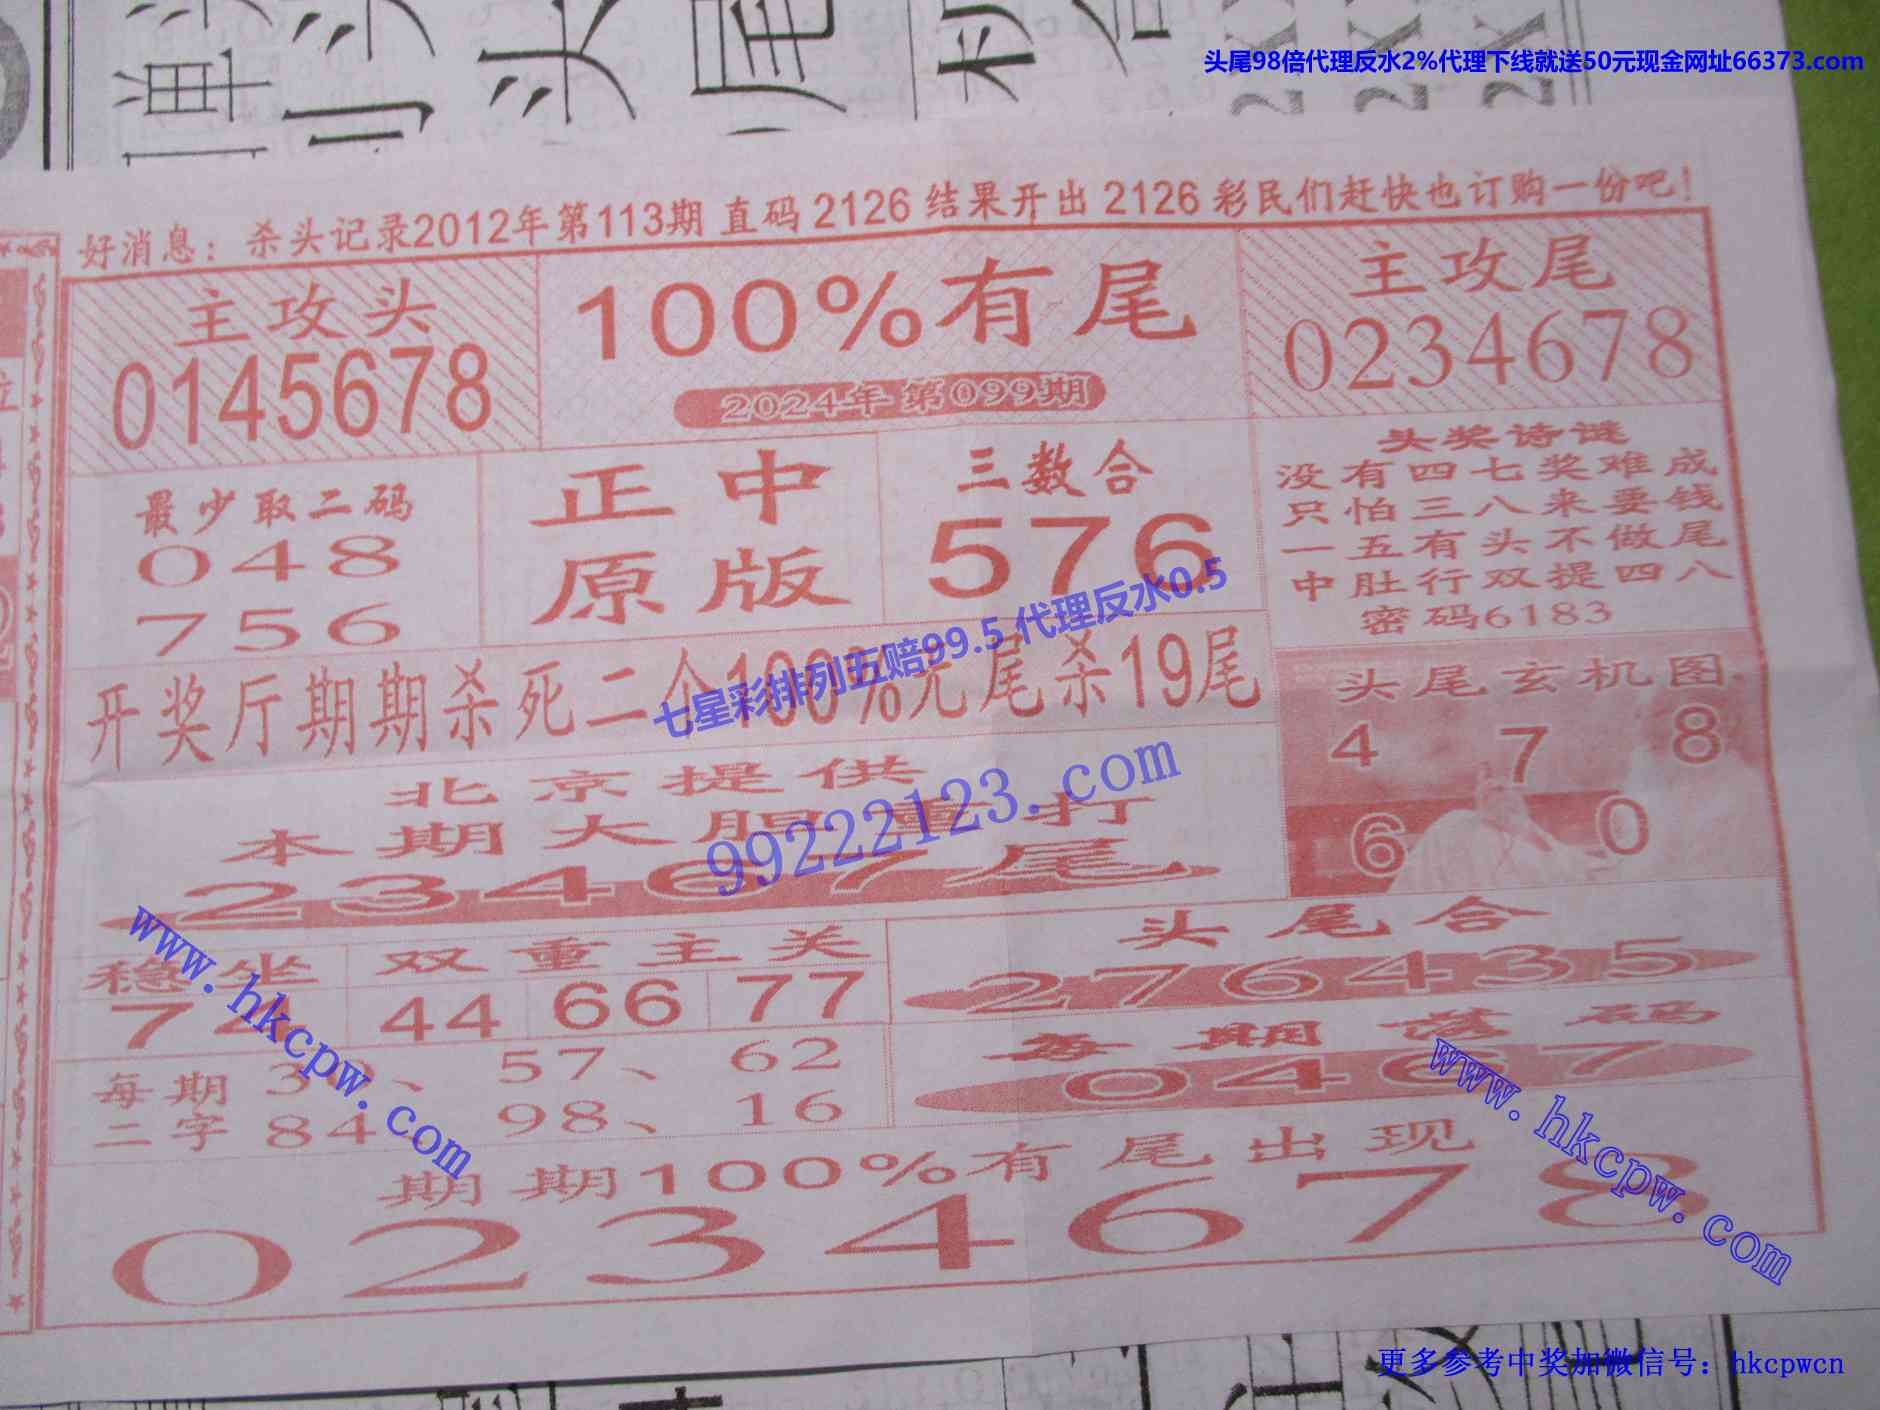 头尾98倍代理反水2%代理下线就送50元现金网址66373.com
好消息：杀头记录2012年第113期 直码 2126 结果开出 2126 彩民们赶快也订购一份吧！
主攻头
0145678
100%有尾
2024年 第099期
主攻尾
0234678
最少取二码
048
756
正中
原版
三数合
576
头奖诗谜
没有四七奖难成
只怕三八来要钱
一五有头不做尾
中肚行双提四八
密码6183
七星彩排列五赔99.5 代理反水0.5
开奖厅期期杀死二个100%无尾杀19尾
头尾玄机图
4 7 8
6 0
99222123.com
北京提供
本期大胆重打
23467尾
稳坐
74
双重主关
44 66 77
头尾合
276435
每期
二字
57、62
84 98、16
每期落码
0467
期期100%有尾出现
0234678
www.hkcpw.com
www.hkcpw.com
更多参考中奖加微信号：hkcpwcn